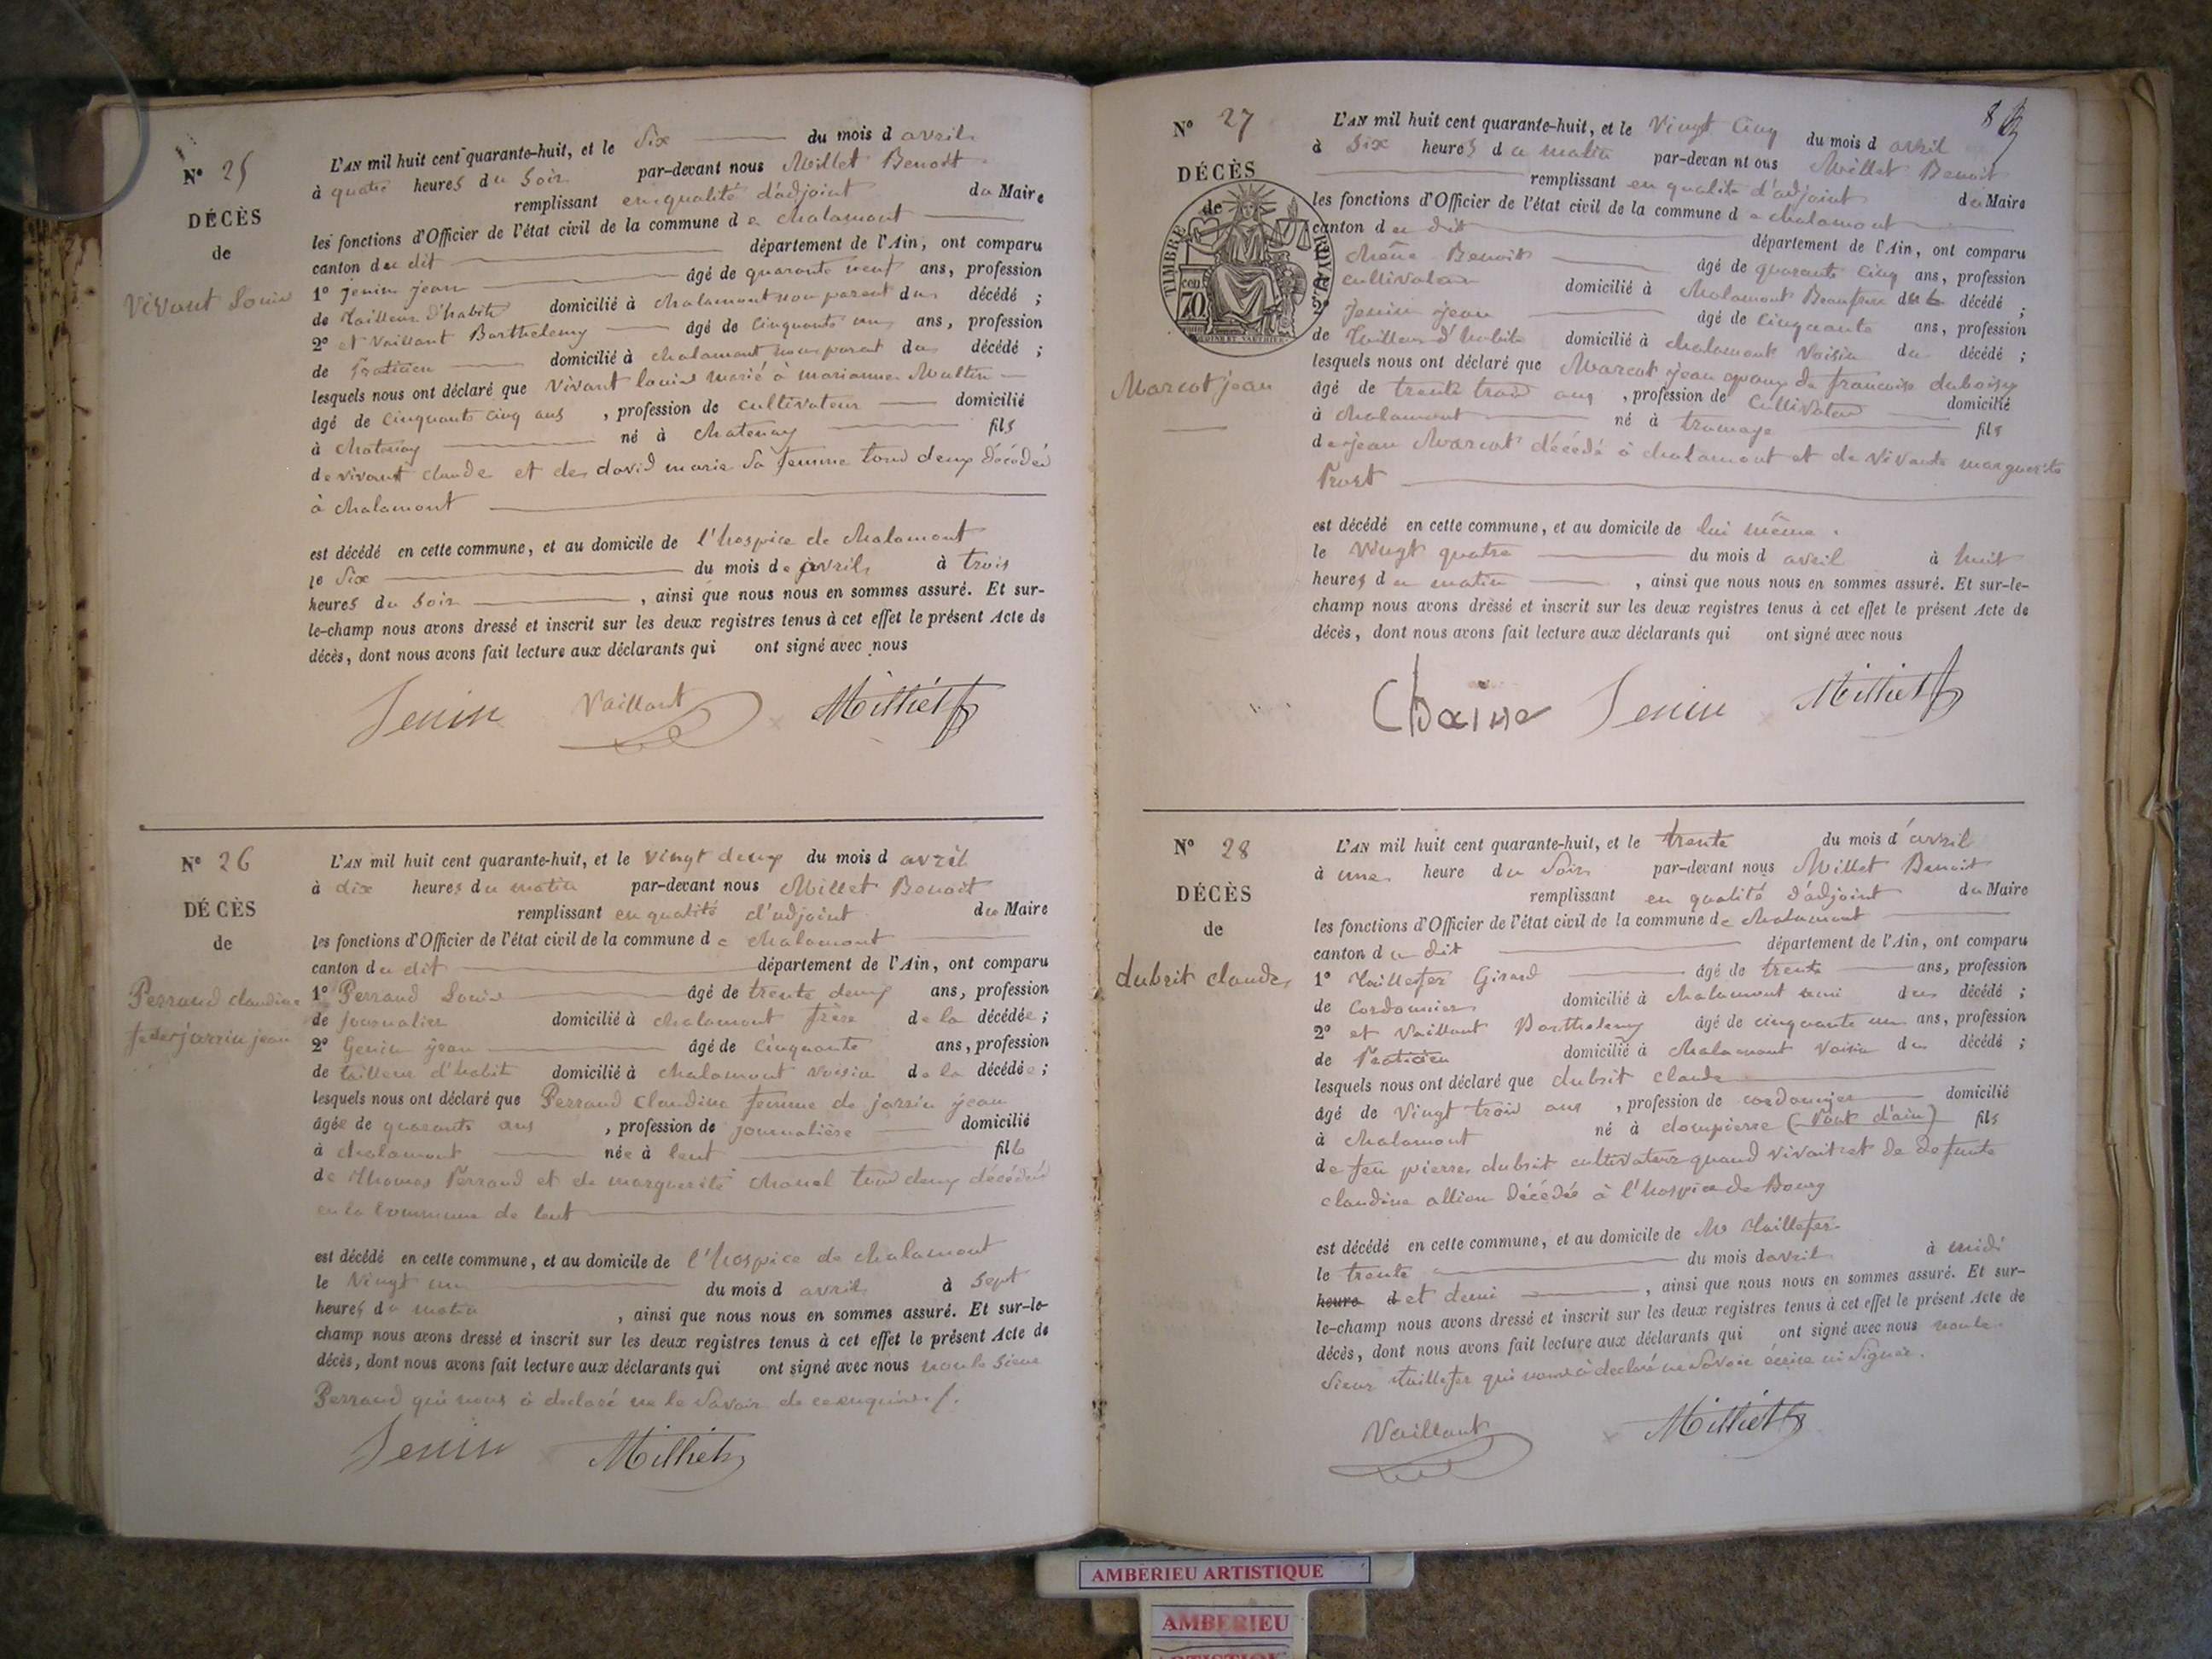 N° 25
DÉCÈS
de
Vivant Louis
L'AN mil huit cent quarante-huit, et le six du mois d avril
à quatre heures du soir par-devant nous Millet Benoit
remplissant en qualité d'adjoint du Maire
les fonctions d'Officier de l'état civil de la commune de chalamont
canton du dit département de l'Ain, ont comparu
1° Jenin jean âgé de quarante neuf ans, profession
de tailleur d'habits domicilié à chalamont non parent du décédé ;
2° et Vaillant Barthelemy âgé de cinquante un ans, profession
de Praticien domicilié à chalamont non parent du décédé ;
lesquels nous ont déclaré que Vivant louis marié à marianne Multin
âgé de cinquante cinq ans , profession de cultivateur domicilié
à chatenay né à chatenay fils
de vivant claude et de david marie sa femme tous deux décédés
à chalamont
est décédé en cette commune, et au domicile de l'hospice de chalamont
le six du mois de avril à trois
heures du soir , ainsi que nous nous en sommes assuré. Et sur-
le-champ nous avons dressé et inscrit sur les deux registres tenus à cet effet le présent Acte de
décès, dont nous avons fait lecture aux déclarants qui ont signé avec nous
Jenin Vaillant Milliet
N° 26
DÉCÈS
de
Perraud claudine
fe de jarrin jean
L'AN mil huit cent quarante-huit, et le vingt deux du mois d avril
à dix heures du matin par-devant nous Millet Benoit
remplissant en qualité d'adjoint du Maire
les fonctions d'Officier de l'état civil de la commune de chalamont
canton du dit département de l'Ain, ont comparu
1° Perraud Louis âgé de trente deux ans, profession
de journalier domicilié à chalamont frère de la décédée ;
2° Genin jean âgé de cinquante ans, profession
de tailleur d'habits domicilié à chalamont voisin de la décédée ;
lesquels nous ont déclaré que Perraud Claudine femme de jarrin jean
âgée de quarante ans , profession de journalière domicilié
à chalamont née à lent fille
de thomas Perraud et de marguerite chanel tous deux décédés
en la commune de lent
est décédé en cette commune, et au domicile de l'hospice de chalamont
le vingt un du mois d avril à sept
heures du matin , ainsi que nous nous en sommes assuré. Et sur-le-
champ nous avons dressé et inscrit sur les deux registres tenus à cet effet le présent Acte de
décès, dont nous avons fait lecture aux déclarants qui ont signé avec nous non le sieur
Perraud qui nous à déclaré ne le savoir de ce enquis
Jenin Milliet
N° 27
DÉCÈS
de
TIMBRE ROYAL
70
Marcot jean
L'AN mil huit cent quarante-huit, et le vingt cinq du mois d avril
à six heures du matin par-devan nt ous Millet Benoit
remplissant en qualité d'adjoint du Maire
les fonctions d'Officier de l'état civil de la commune de chalamont
canton du dit département de l'Ain, ont comparu
chêne Benoit âgé de quarante cinq ans, profession
cultivateur domicilié à chalamont Beaufrere du décédé ;
2° Jenin jean âgé de cinquante ans, profession
de tailleur d'habits domicilié à chalamont voisin du décédé ;
lesquels nous ont déclaré que Marcot jean époux de francoise duboisy
âgé de trente trois ans , profession de cultivateur domicilié
à chalamont né à tramaye fils
de jean Marcot décédé à chalamont et de vivante marguerite
Prost
est décédé en cette commune, et au domicile de lui même.
le vingt quatre du mois d avril à huit
heures du matin , ainsi que nous nous en sommes assuré. Et sur-le-
champ nous avons dressé et inscrit sur les deux registres tenus à cet effet le présent Acte de
décès, dont nous avons fait lecture aux déclarants qui ont signé avec nous
Chaine Jenin Milliet
N° 28
DÉCÈS
de
dubrit claude
L'AN mil huit cent quarante-huit, et le trente du mois d'avril
à une heure du soir par-devant nous Millet Benoit
remplissant en qualité d'adjoint du Maire
les fonctions d'Officier de l'état civil de la commune de chalamont
canton du dit département de l'Ain, ont comparu
1° Taillefer Girard âgé de trente ans, profession
de cordonnier domicilié à chalamont ami du décédé ;
2° et Vaillant Barthelemy âgé de cinquante un ans, profession
de Praticien domicilié à chalamont voisin du décédé ;
lesquels nous ont déclaré que dubrit claude
âgé de vingt trois ans , profession de cordonnier domicilié
à chalamont né à dompierre (Pont d'ain) fils
de feu pierre dubrit cultivateur quand vivait et de defunte
claudine allion décédée à l'hospice de Bourg
est décédé en cette commune, et au domicile de Mr Taillefer
le trente du mois d avril à midi
heure d et demi , ainsi que nous nous en sommes assuré. Et sur-
le-champ nous avons dressé et inscrit sur les deux registres tenus à cet effet le présent Acte de
décès, dont nous avons fait lecture aux déclarants qui ont signé avec nous non le
sieur taillefer qui nous à déclaré ne savoir écrire ni signer.
Vaillant Milliet
AMBERIEU ARTISTIQUE
AMBERIEU
ARTISTIQUE